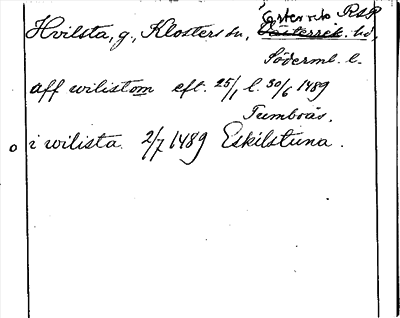 Österrek RSP
Hvilsta, g., Klosters sn, Västerrek. hd,
Söderml. l.
aff wilistom eft. 25/1 l. 30/6 1489
Tumboås.
o i wilista. 2/7 1489 Eskilstuna.